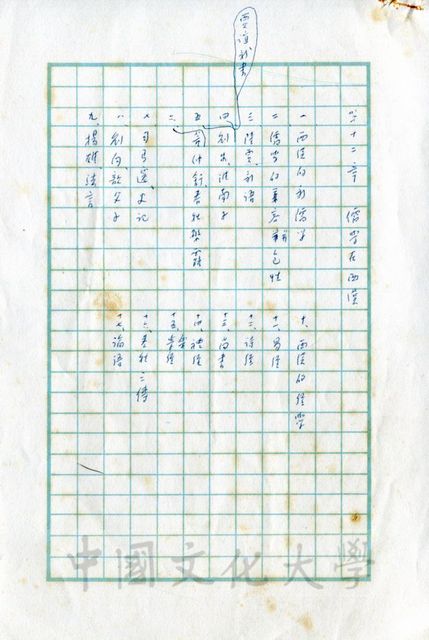 第十二章 儒學在西漢
一、西漢的新儒學
二、儒學的兼容並包性
三、陸賈新語
賈誼新書
四、劉安淮南子
五、董仲舒春秋繁露
六、
七、司馬遷史記
八、劉向歆父子
九、揚雄法言
十、西漢的經學
十一、易經
十二、詩經
十三、尚書
十四、禮經
十五、樂經
孝經
十六、春秋三傳
十七、論語
中國文化大學